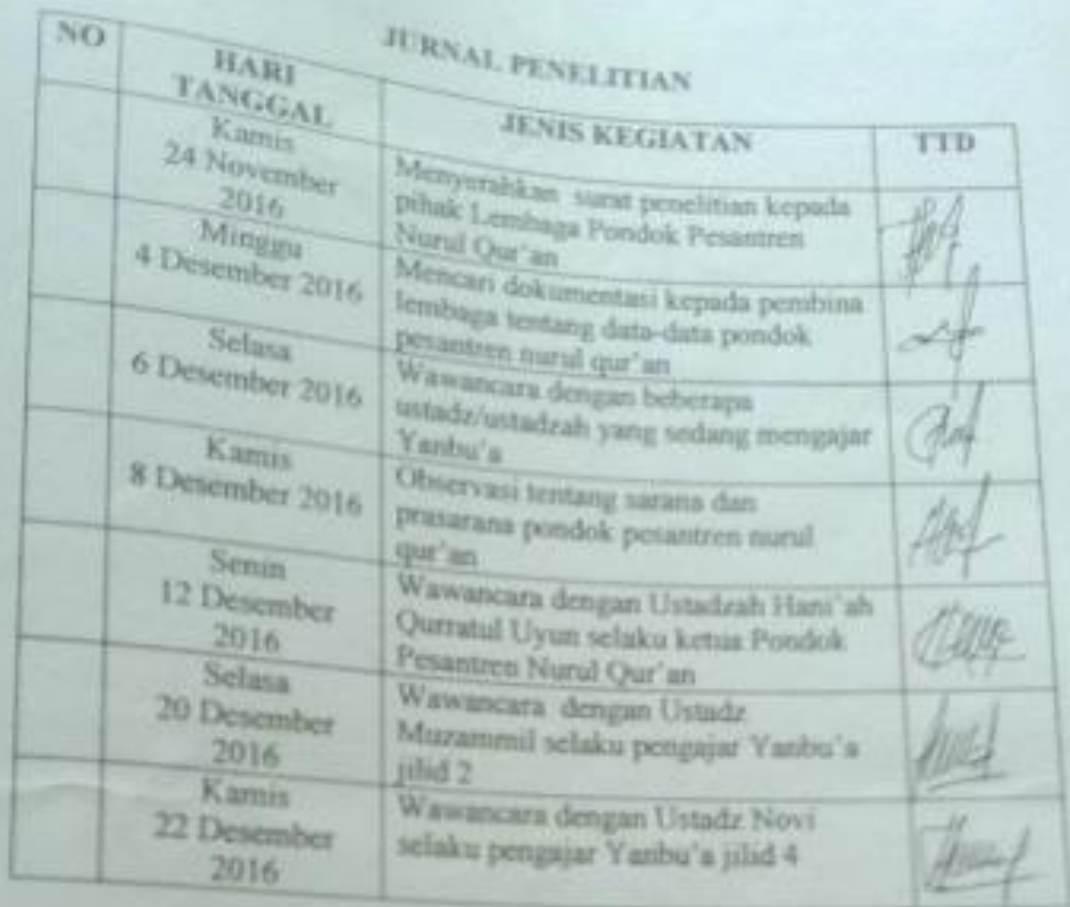 JURNAL PENELITIAN
NO
HARI
TANGGAL
JENIS KEGIATAN
TTD
Kamis
24 November
2016
Menyerahkan surat penelitian kepada
pihak Lembaga Pondok Pesantren
Nurul Qur'an
Minggu
4 Desember 2016
Mencari dokumentasi kepada pembina
lembaga tentang data-data pondok
pesantren nurul qur'an
Selasa
6 Desember 2016
Wawancara dengan beberapa
ustadz/ustadzah yang sedang mengajar
Yanbu'a
Kamis
8 Desember 2016
Observasi tentang sarana dan
prasarana pondok pesantren nurul
qur'an
Senin
12 Desember
2016
Wawancara dengan Ustadzah Hani'ah
Qurratul Uyun selaku ketua Pondok
Pesantren Nurul Qur'an
Selasa
20 Desember
2016
Wawancara dengan Ustadz
Muzammil selaku pengajar Yanbu'a
jilid 2
Kamis
22 Desember
2016
Wawancara dengan Ustadz Novi
selaku pengajar Yanbu'a jilid 4